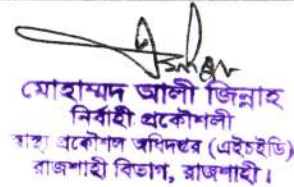 মোহাম্মদ আলী জিন্নাহ
নির্বাহী প্রকৌশলী
স্বাস্থ্য প্রকৌশল অধিদপ্তর (এইচইডি)
রাজশাহী বিভাগ, রাজশাহী।